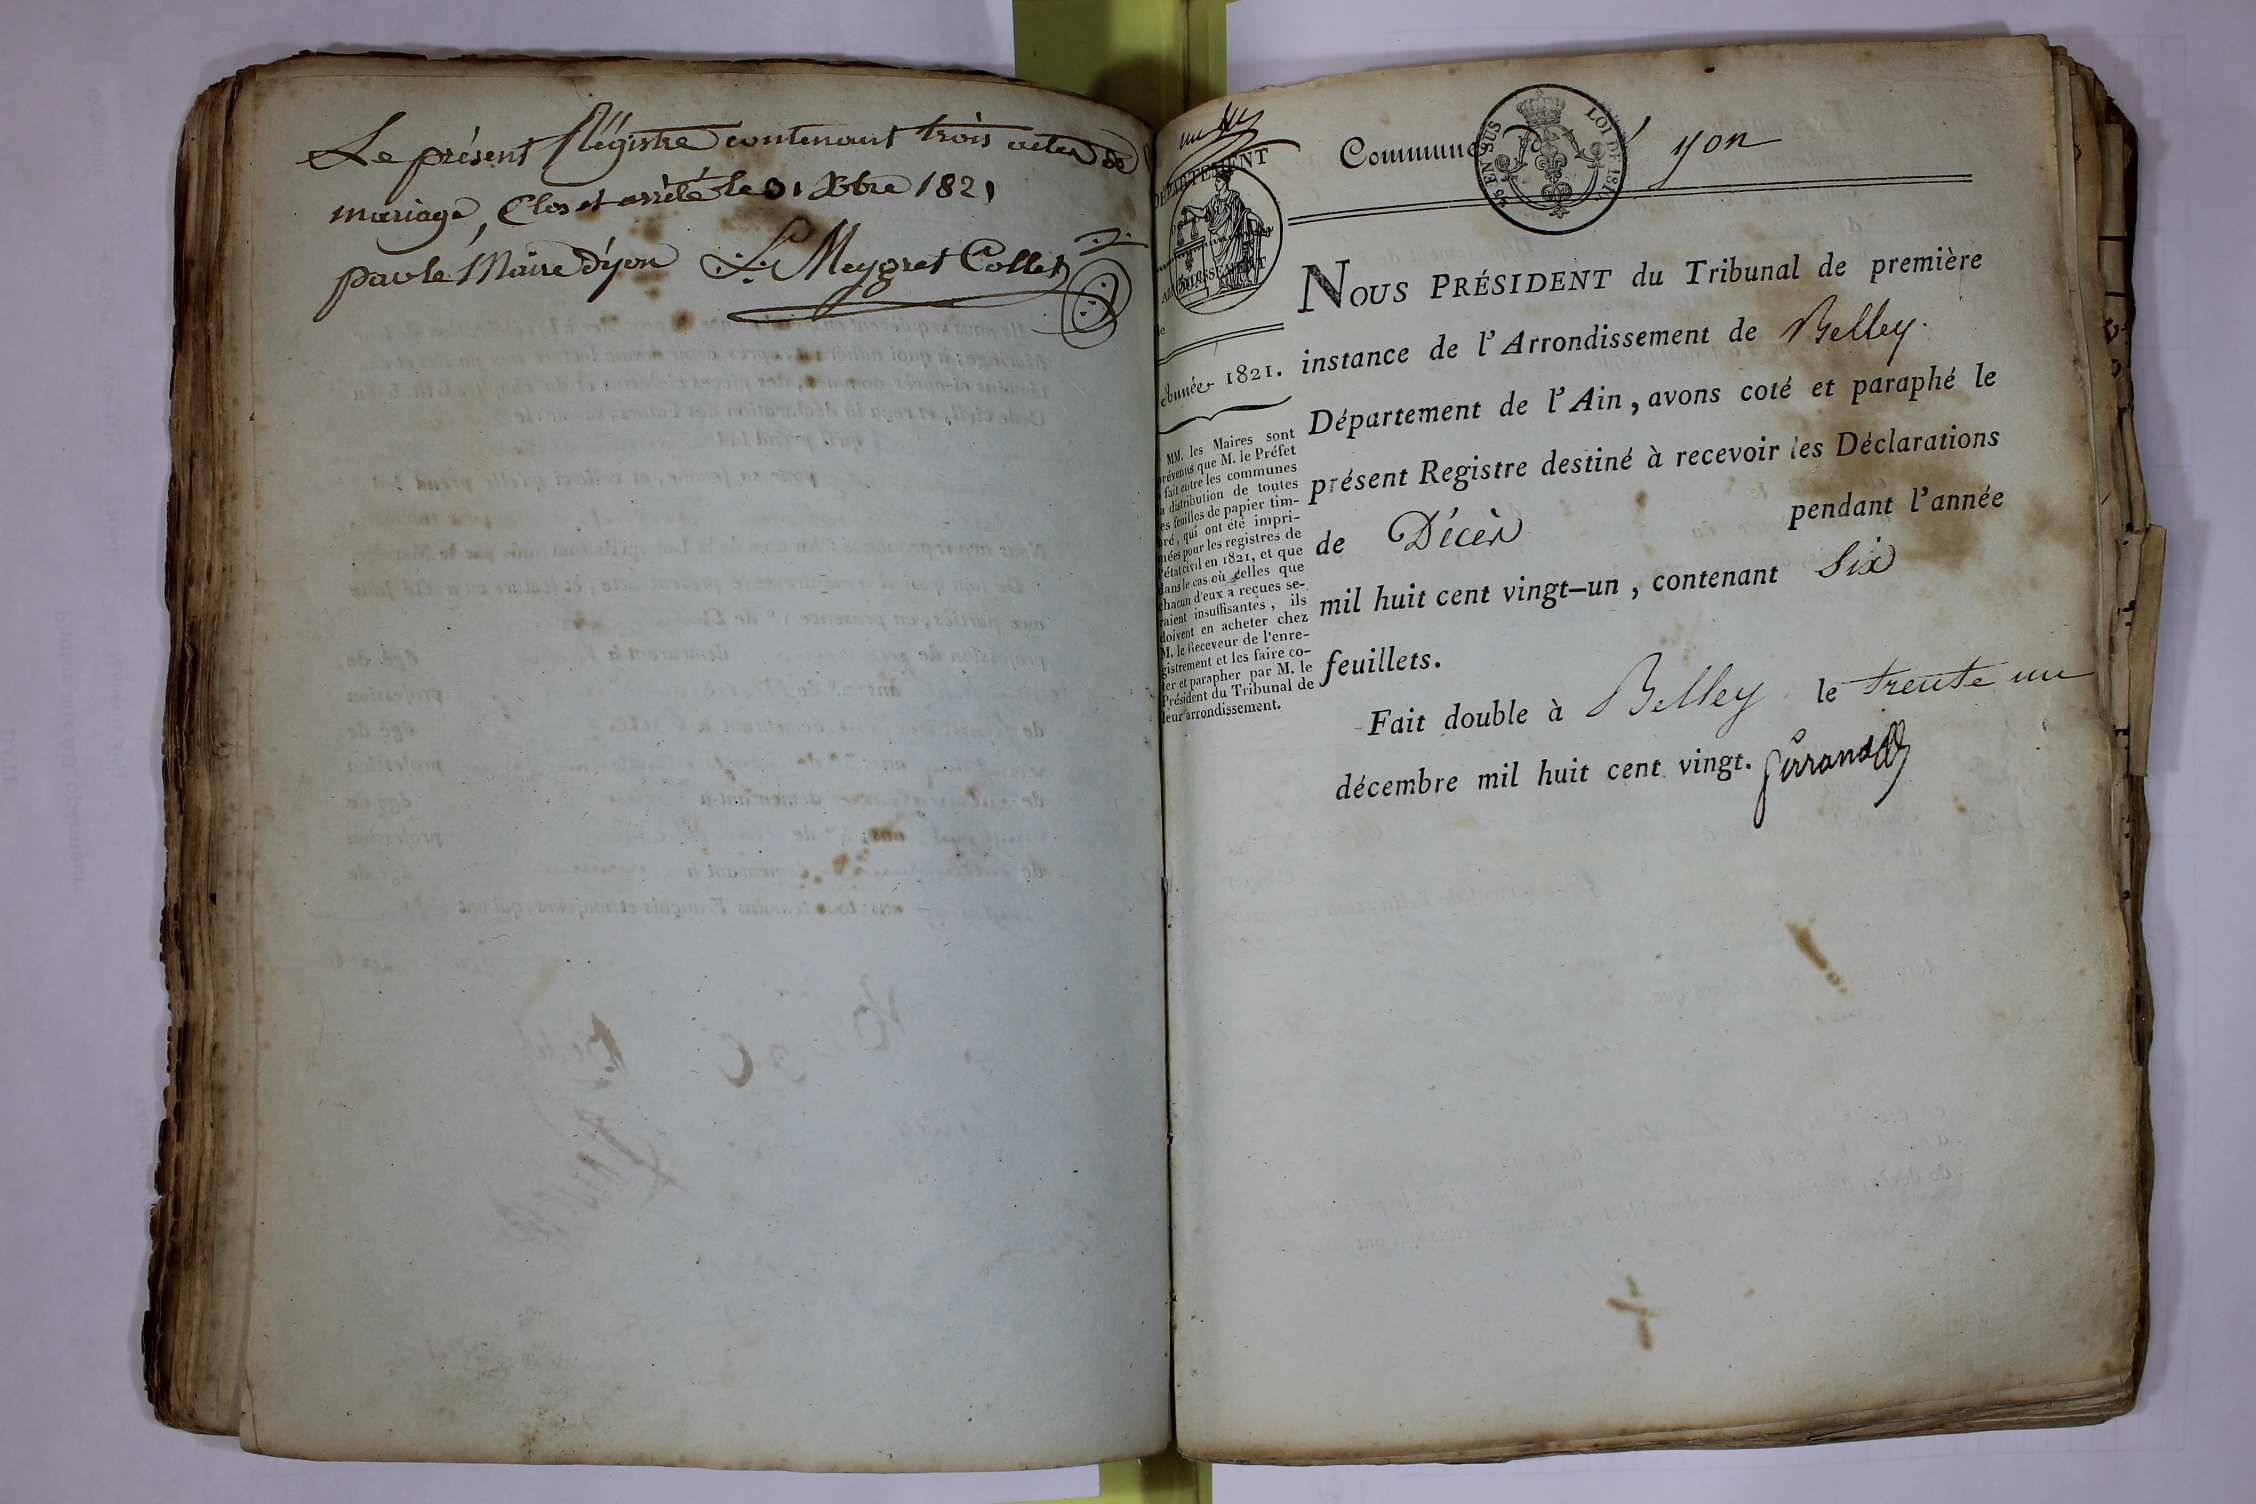 Le présent Régistre contenant trois actes de
mariage, Clos et arrêté le 31 Xbre 1821
par le Maire d'yon L. Meygret Collet
DÉPARTEMENT
ARRONDISSEMENT
Année 1821.
MM. les Maires sont
prévenus que M. le Préfet
a fait entre les communes
la distribution de toutes
les feuilles de papier tim-
bré, qui ont été impri-
mées pour les registres de
l'état civil en 1821, et que
dans le cas où celles que
chacun d'eux a reçues se-
raient insuffisantes, ils
doivent en acheter chez
M. le Receveur de l'enre-
gistrement et les faire co-
ter et parapher par M. le
Président du Tribunal de
leur arrondissement.
Commune d'yon
EN SUS LOI DE 181
NOUS PRÉSIDENT du Tribunal de première
instance de l'Arrondissement de Belley.
Département de l'Ain, avons coté et paraphé le
présent Registre destiné à recevoir les Déclarations
de Décès pendant l'année
mil huit cent vingt-un, contenant Six
feuillets.
Fait double à Belley le trente un
décembre mil huit cent vingt.